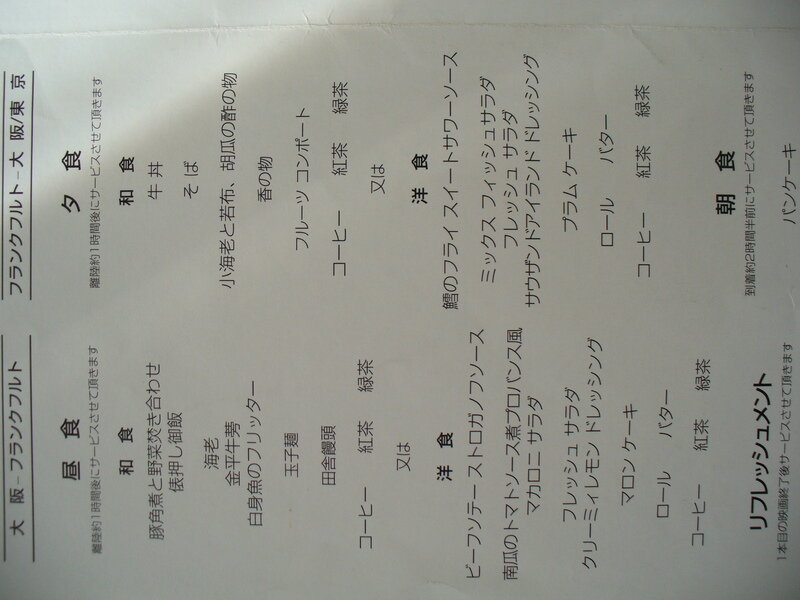 大 阪 – フランクフルト
昼 食
離陸約1時間後にサービスさせて頂きます
和 食
豚角煮と野菜焚き合わせ
俵押し御飯
海老
金平牛蒡
白身魚のフリッター
玉子麺
田舎饅頭
コーヒー 紅茶 緑茶
又は
洋 食
ビーフソテー ストロガノフソース
南瓜のトマトソース煮プロバンス風
マカロニ サラダ
フレッシュ サラダ
クリーミィレモン ドレッシング
マロン ケーキ
ロール バター
コーヒー 紅茶 緑茶
リフレッシュメント
1本目の映画終了後サービスさせて頂きます
フランクフルト – 大 阪/東 京
夕 食
離陸約1時間後にサービスさせて頂きます
和 食
牛 丼
そ ば
小海老と若布、胡瓜の酢の物
香の物
フルーツ コンポート
コーヒー 紅茶 緑茶
又は
洋 食
鱈のフライ スイートサワーソース
ミックス フィッシュサラダ
フレッシュ サラダ
サウザンドアイランド ドレッシング
プラム ケーキ
ロール バター
コーヒー 紅茶 緑茶
朝 食
到着約2時間半前にサービスさせて頂きます
パンケーキ